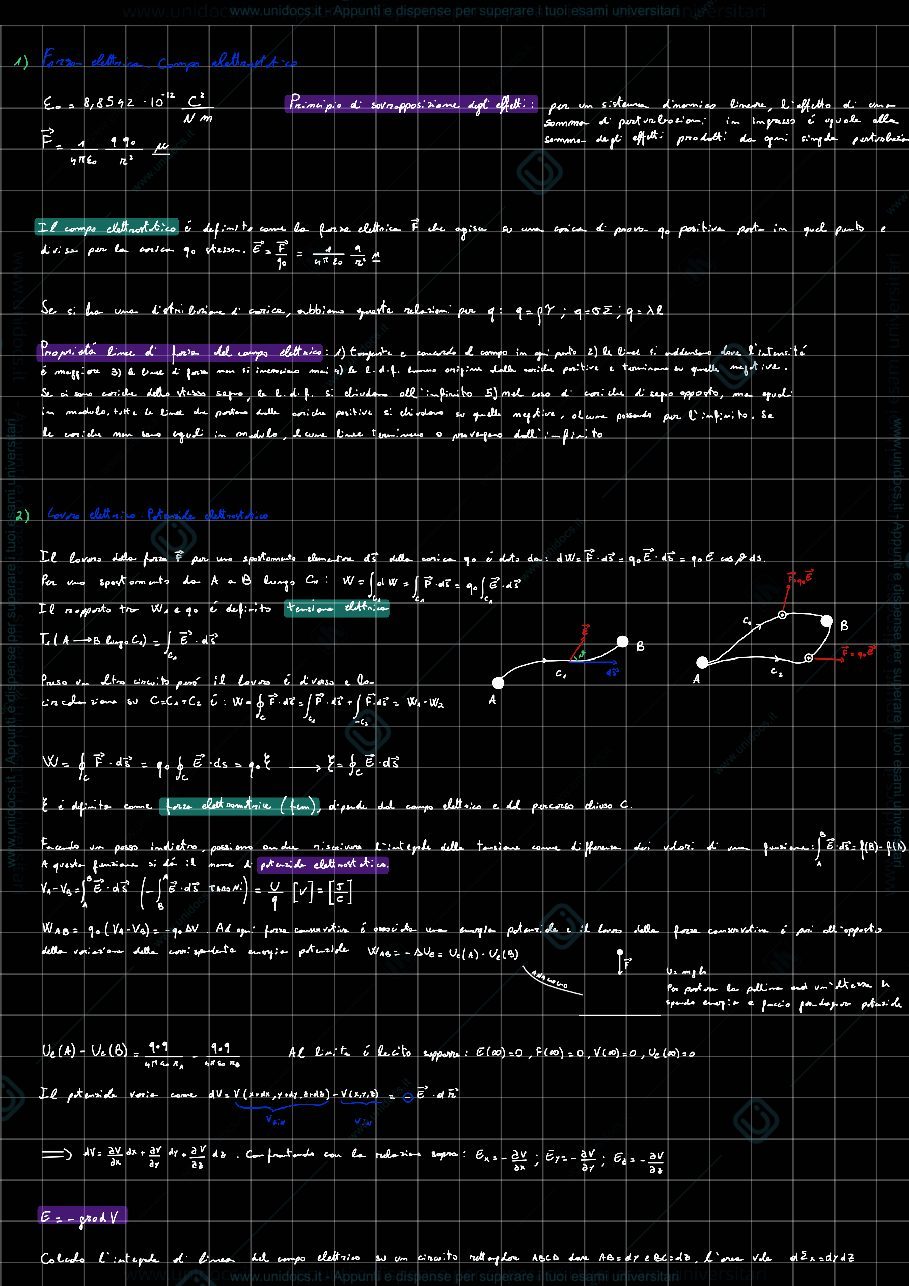 www.unidocs.it - Appunti e dispense per superare i tuoi esami universitari
1) Forza elettrica. Campo elettrostatico
ε₀ = 8,8542 · 10⁻¹² C²/(N m)
Principio di sovrapposizione degli effetti: per un sistema dinamico lineare, l'effetto di una
somma di perturbazioni in ingresso è uguale alla
somma degli effetti prodotti da ogni singola perturbazione
F⃗ = 1/(4πε₀) q q₀/r² u
Il campo elettrostatico è definito come la forza elettrica F⃗ che agisce su una carica di prova q₀ positiva posta in quel punto e
divisa per la carica q₀ stessa. E⃗ = F⃗/q₀ = 1/(4πε₀) q/r² u
Se si ha una distribuzione di carica, abbiamo queste relazioni per q: q=ρτ ; q=σΣ ; q=λl
Proprietà linee di forza del campo elettrico: 1) tangente e concorde al campo in ogni punto 2) le linee si addensano dove l'intensità
è maggiore 3) le linee di forza non si incrociano mai 4) le l.d.f. hanno origine dalle cariche positive e terminano su quelle negative.
Se ci sono cariche dello stesso segno, le l.d.f. si chiudono all'infinito 5) nel caso di cariche di segno opposto, ma uguali
in modulo, tutte le linee che partono dalle cariche positive si chiudono su quelle negative, alcune passando per l'infinito. Se
le cariche non sono uguali in modulo, alcune linee terminano o provengono dall'infinito
2) Lavoro elettrico. Potenziale elettrostatico
Il lavoro della forza F⃗ per uno spostamento elementare ds⃗ della carica q₀ è dato da: dW = F⃗·ds⃗ = q₀E⃗·ds⃗ = q₀ E cos ϑ ds
Per uno spostamento da A a B lungo C₁: W = ∫_C₁ dW = ∫_C₁ F⃗·ds⃗ = q₀ ∫_C₁ E⃗·ds⃗
Il rapporto tra W₁ e q₀ è definito tensione elettrica
T₁(A → B lungo C₁) = ∫_C₁ E⃗·ds⃗
A C₁ E⃗ ϑ ds⃗ B
A C₁ C₂ B F⃗=q₀E⃗ F⃗=q₀E⃗
Preso un altro circuito però il lavoro è diverso e la
circolazione su C=C₁+C₂ è: W = ∮_C F⃗·ds⃗ = ∫_C₁ F⃗·ds⃗ + ∫_-C₂ F⃗·ds⃗ = W₁-W₂
W = ∮_C F⃗·ds⃗ = q₀ ∮_C E⃗·ds = q₀ξ → ξ = ∮_C E⃗·ds⃗
ξ è definita come forza elettromotrice (fem), dipende dal campo elettrico e dal percorso chiuso C.
Facendo un passo indietro, possiamo anche riscrivere l'integrale della tensione come differenza dei valori di una funzione: ∫_A^B E⃗·ds⃗ = f(B)-f(A)
A questa funzione si dà il nome di potenziale elettrostatico.
V_A-V_B = ∫_A^B E⃗·ds⃗ (-∫_B^A E⃗·ds⃗) = U/q [V]=[J/C]
W_AB = q₀(V_A-V_B) = -q₀ΔV. Ad ogni forza conservativa è associata una energia potenziale e il lavoro della forza conservativa è pari all'opposto
della variazione della corrispondente energia potenziale W_AB = -ΔU_e = U_e(A) - U_e(B)
F⃗
U=mgh
Per portare la pallina ad un'altezza h
spendo energia e faccio guadagnare potenziale
U_e(A) - U_e(B) = q₀q/(4πε₀r_A) - q₀q/(4πε₀r_B) Al limite è lecito supporre: E(∞)=0, F(∞)=0, V(∞)=0, U_e(∞)=0
Il potenziale varia come dV = V(x+dx, y+dy, z+dz) - V(x,y,z) = -E⃗·ds⃗
V_fin V_in
⟹ dV = ∂V/∂x dx + ∂V/∂y dy + ∂V/∂z dz. Confrontando con la relazione sopra: E_x = -∂V/∂x ; E_y = -∂V/∂y ; E_z = -∂V/∂z
E = -grad V
Calcolo l'integrale di linea del campo elettrico su un circuito rettangolare ABCD dove AB=dy e BC=dz, l'area vale dΣ_x=dydz
www.unidocs.it - Appunti e dispense per superare i tuoi esami universitari